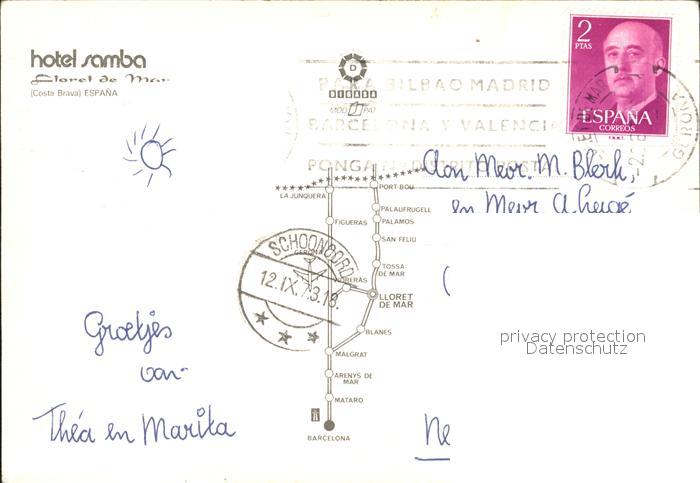 hotel samba
Lloret de Mar
(Costa Brava) ESPAÑA
D
2
PTAS
ESPAÑA
CORREOS
PARA BILBAO MADRID
BARCELONA Y VALENCIA
PONGA
Aan Mevr. M.
en Mevr A.
LA JUNQUERA
PORT BOU
PALAUFRUGELL
FIGUERAS
PALAMOS
SAN FELIU
SCHOONOORD
12.IX.73.18.
TOSSA
DE MAR
LLORET
DE MAR
BLANES
MALGRAT
ARENYS DE
MAR
MATARO
BARCELONA
privacy protection
Datenschutz
Groetjes
van
Théa en Marita
Ne